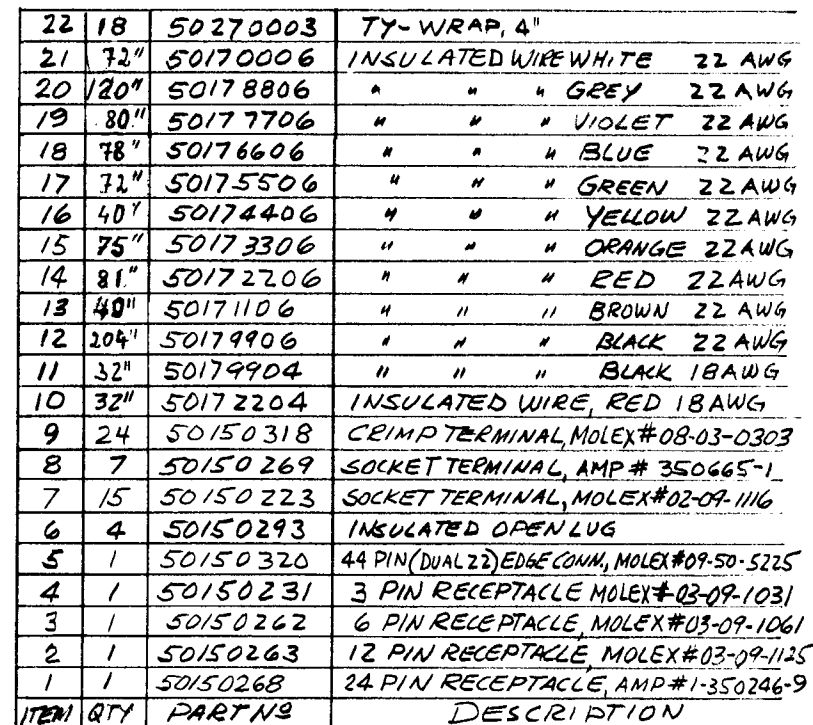 22 18 50270003 TY-WRAP, 4"
21 72" 50170006 INSULATED WIRE WHITE 22 AWG
20 120" 50178806 " " " GREY 22 AWG
19 80" 50177706 " " " VIOLET 22 AWG
18 78" 50176606 " " " BLUE 22 AWG
17 72" 50175506 " " " GREEN 22 AWG
16 40" 50174406 " " " YELLOW 22 AWG
15 75" 50173306 " " " ORANGE 22 AWG
14 81" 50172206 " " " RED 22 AWG
13 40" 50171106 " " " BROWN 22 AWG
12 204" 50179906 " " " BLACK 22 AWG
11 32" 50179904 " " " BLACK 18 AWG
10 32" 50172204 INSULATED WIRE, RED 18 AWG
9 24 50150318 CRIMP TERMINAL, MOLEX # 08-03-0303
8 7 50150269 SOCKET TERMINAL, AMP # 350665-1
7 15 50150223 SOCKET TERMINAL, MOLEX # 02-09-1116
6 4 50150293 INSULATED OPEN LUG
5 1 50150320 44 PIN (DUAL 22) EDGE CONN., MOLEX # 09-50-5225
4 1 50150231 3 PIN RECEPTACLE MOLEX # 03-09-1031
3 1 50150262 6 PIN RECEPTACLE, MOLEX # 03-09-1061
2 1 50150263 12 PIN RECEPTACLE, MOLEX # 03-09-1125
1 1 50150268 24 PIN RECEPTACLE, AMP # 1-350246-9
ITEM QTY PART Nº DESCRIPTION